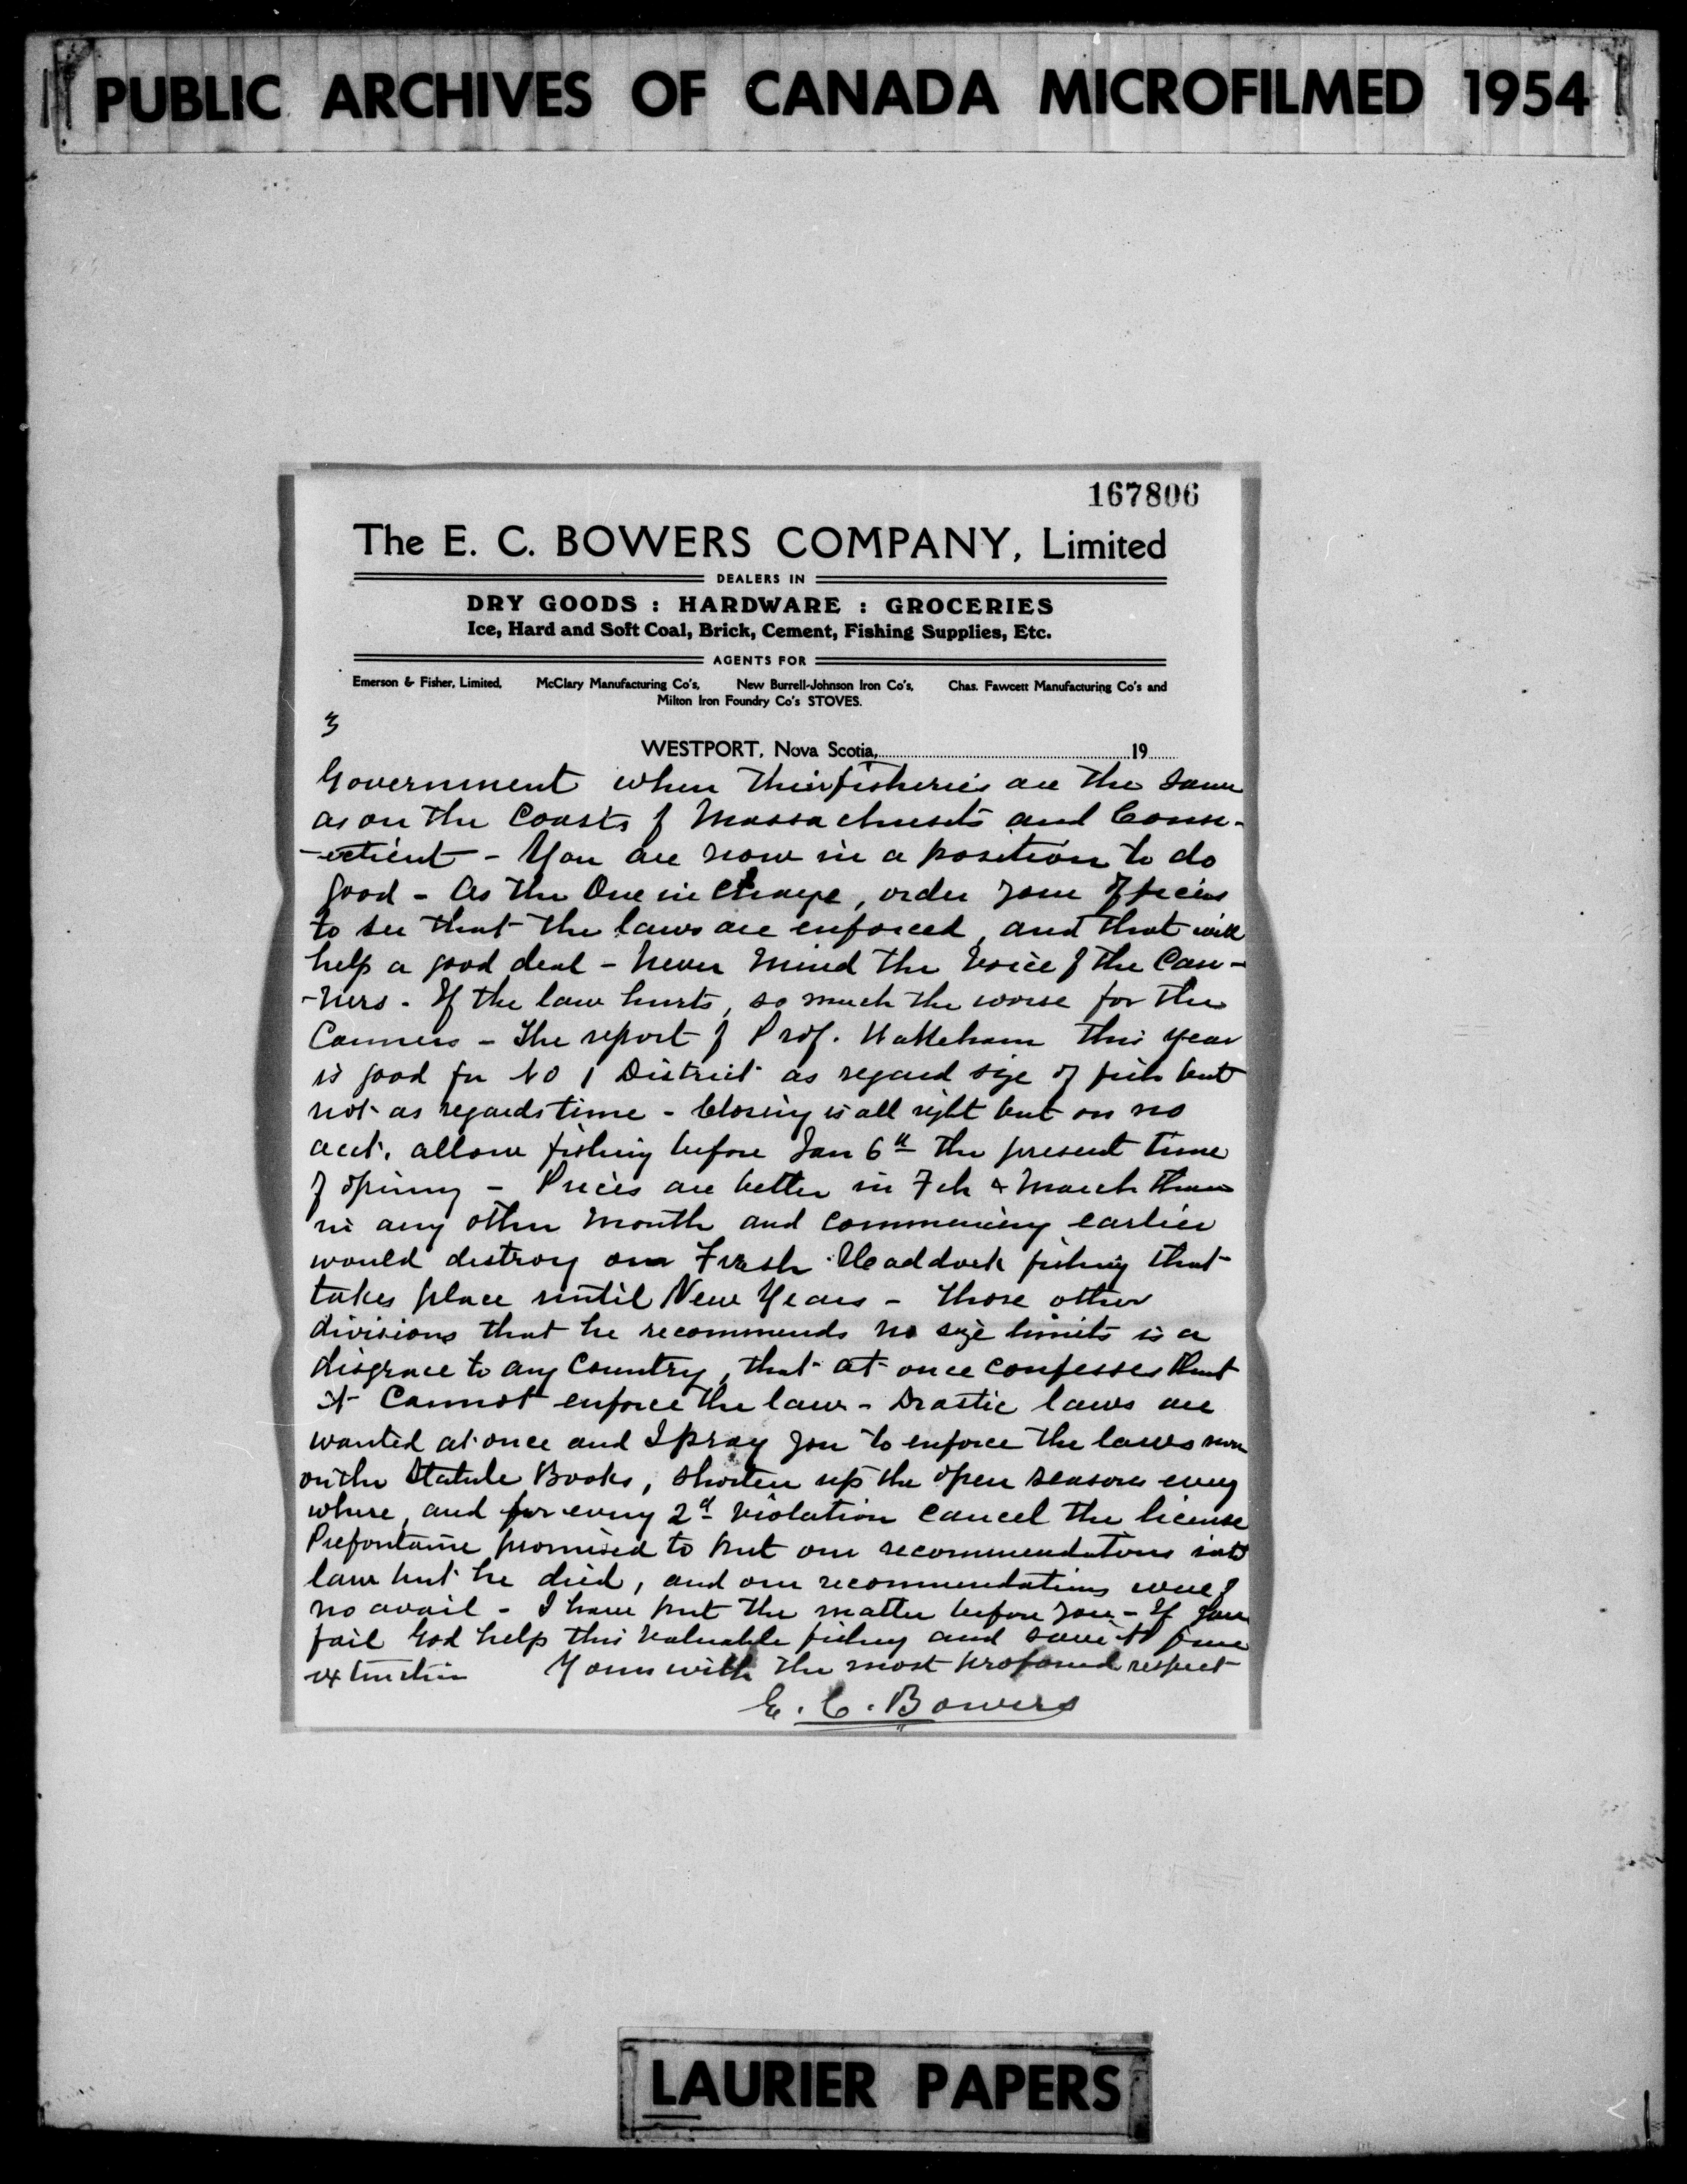 PUBLIC ARCHIVES OF CANADA MICROFILMED 1954
167806
The E. C. BOWERS COMPANY, Limited
DEALERS IN
DRY GOODS : HARDWARE : GROCERIES
Ice, Hard and Soft Coal, Brick, Cement, Fishing Supplies, Etc.
AGENTS FOR
Emerson & Fisher, Limited, McClary Manufacturing Co's, New Burrell-Johnson Iron Co's, Chas. Fawcett Manufacturing Co's and
Milton Iron Foundry Co's STOVES.
3
WESTPORT, Nova Scotia, 19
Government when their fisheries are the same
as on the Coasts of Massachusets and Conn-
-ecticut - You are now in a position to do
good - As the One in Charge, order your Officers
to see that the laws are enforced, and that will
help a good deal - Never Mind the Voice of the Can-
-ners. If the law hurts, so much the worse for the
Canners - The report of Prof. Wakeham this year
is good for No 1 District as regard size of fish but
not as regards time - Closing is all right but on no
acct. allow fishing before Jan 6th the present time
of opening - Prices are better in Feb & March than
in any other Month and commencing earlier
would destroy our Fresh Haddock fishing that
takes place until New Years - Those other
divisions that he recommends no size limits is a
disgrace to any Country, that at once confesses that
it Cannot enforce the law - Drastic laws are
wanted at once and I pray you to enforce the laws now
on the Statute Books, shorten up the open seasons every
where, and for every 2d Violation cancel the license
Prefontaine promised to put our recommendations into
law but he died, and our recommendations were of
no avail - I have put the matter before you - If you
fail God help this valuable fishery and save it from
extinction Yours with the most profound respect
E. C. Bowers
LAURIER PAPERS